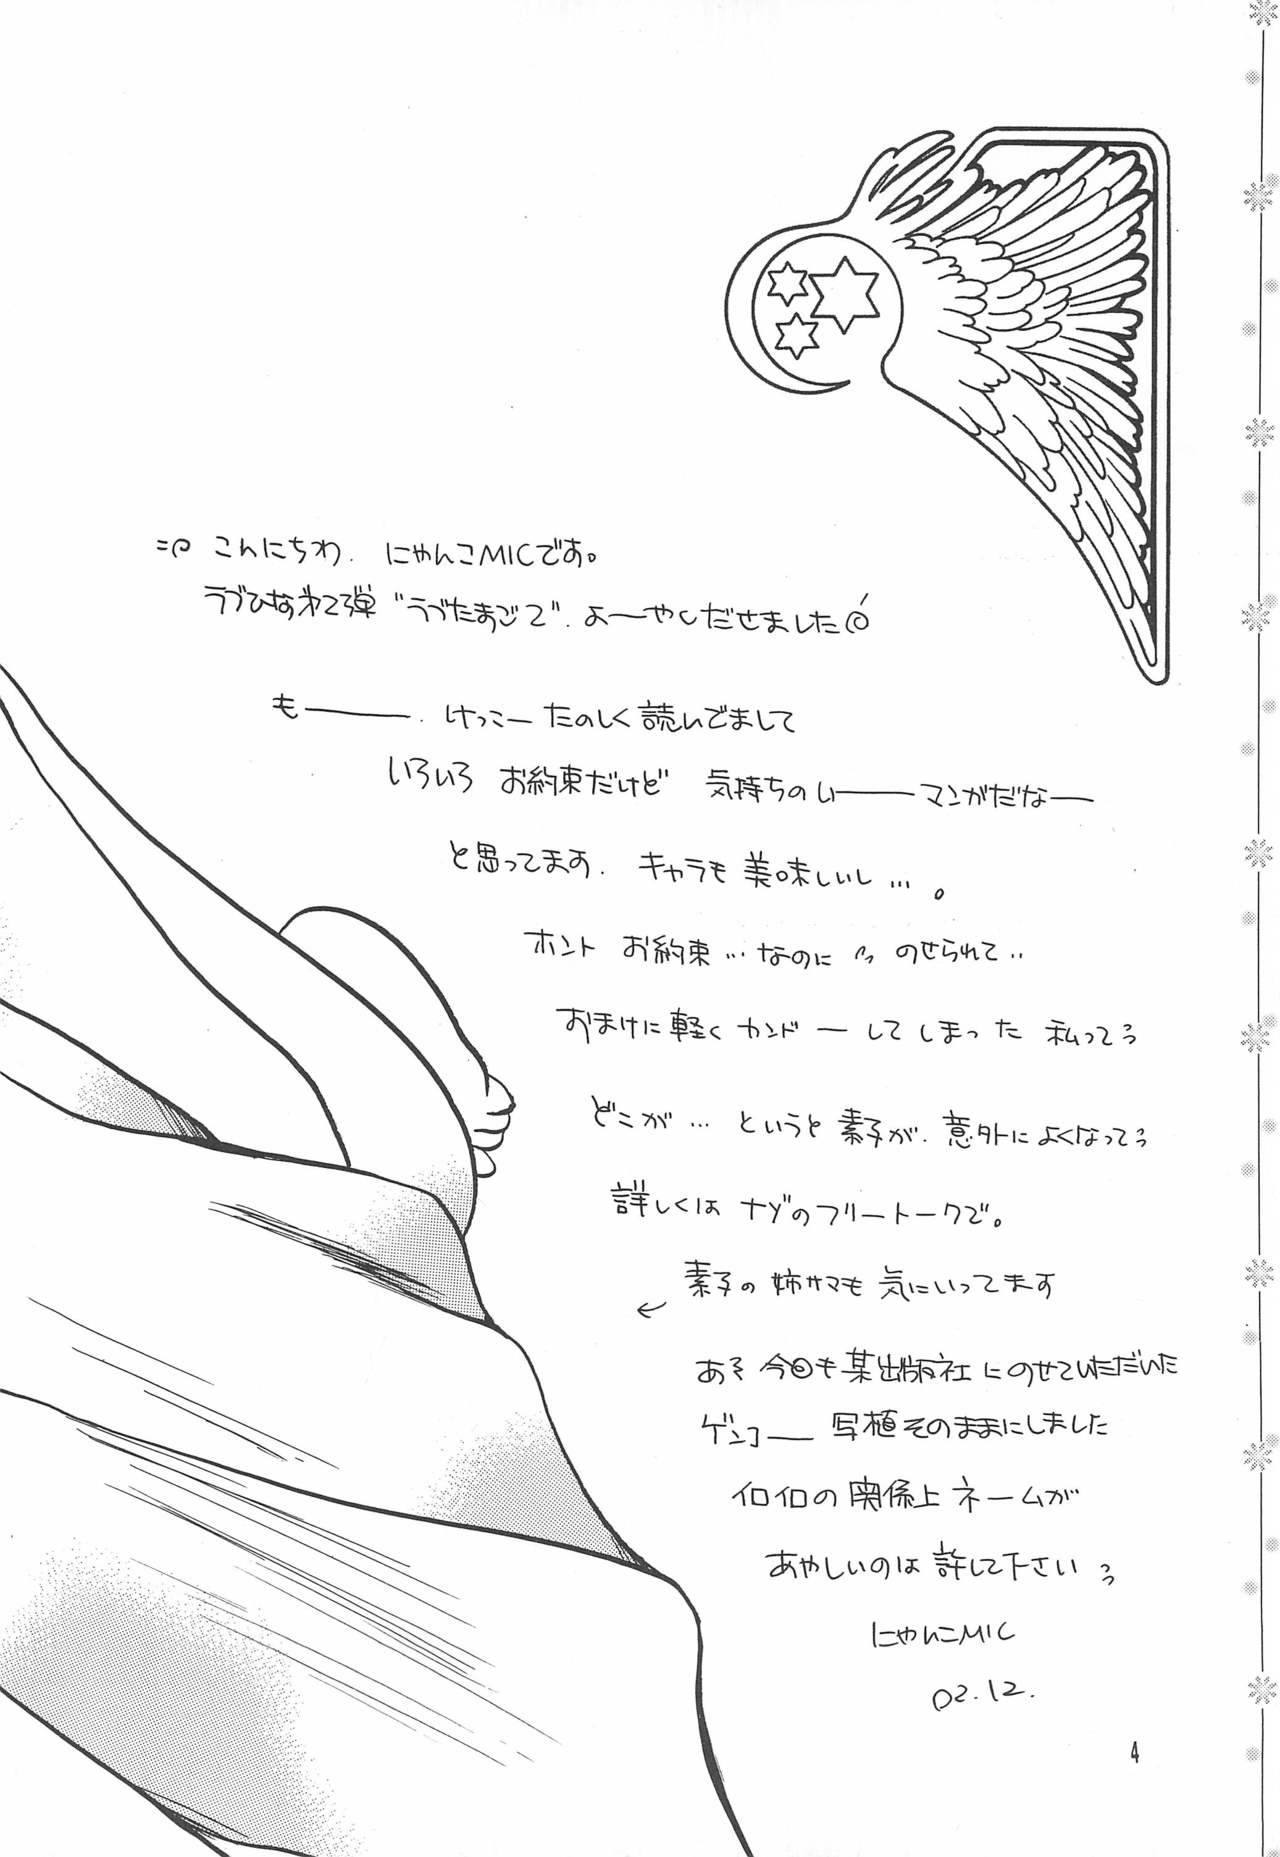 こんにちわ. にゃんこMICです。
ラブひな 第2弾 “ラブたまご2”. よーーやくだせました
もーーー. けっこーたのしく読んでまして
いろいろ お約束だけど 気持ちのいーーーマンガだなー
と思ってます. キャラも美味しいし…。
ホント お約束…なのに のせられて‥
おまけに軽く カンドーしてしまった 私って
どこが…というと素子が. 意外によくなって
詳しくは ナゾのフリートークで。
素子の 姉サマも 気にいってます
←
あそ 今回も某出版社にのせていただいた
ゲンコー 写植そのままにしました
イロイロの関係上 ネームが
あやしいのは 許して下さい
にゃんこMIC
02.12.
4